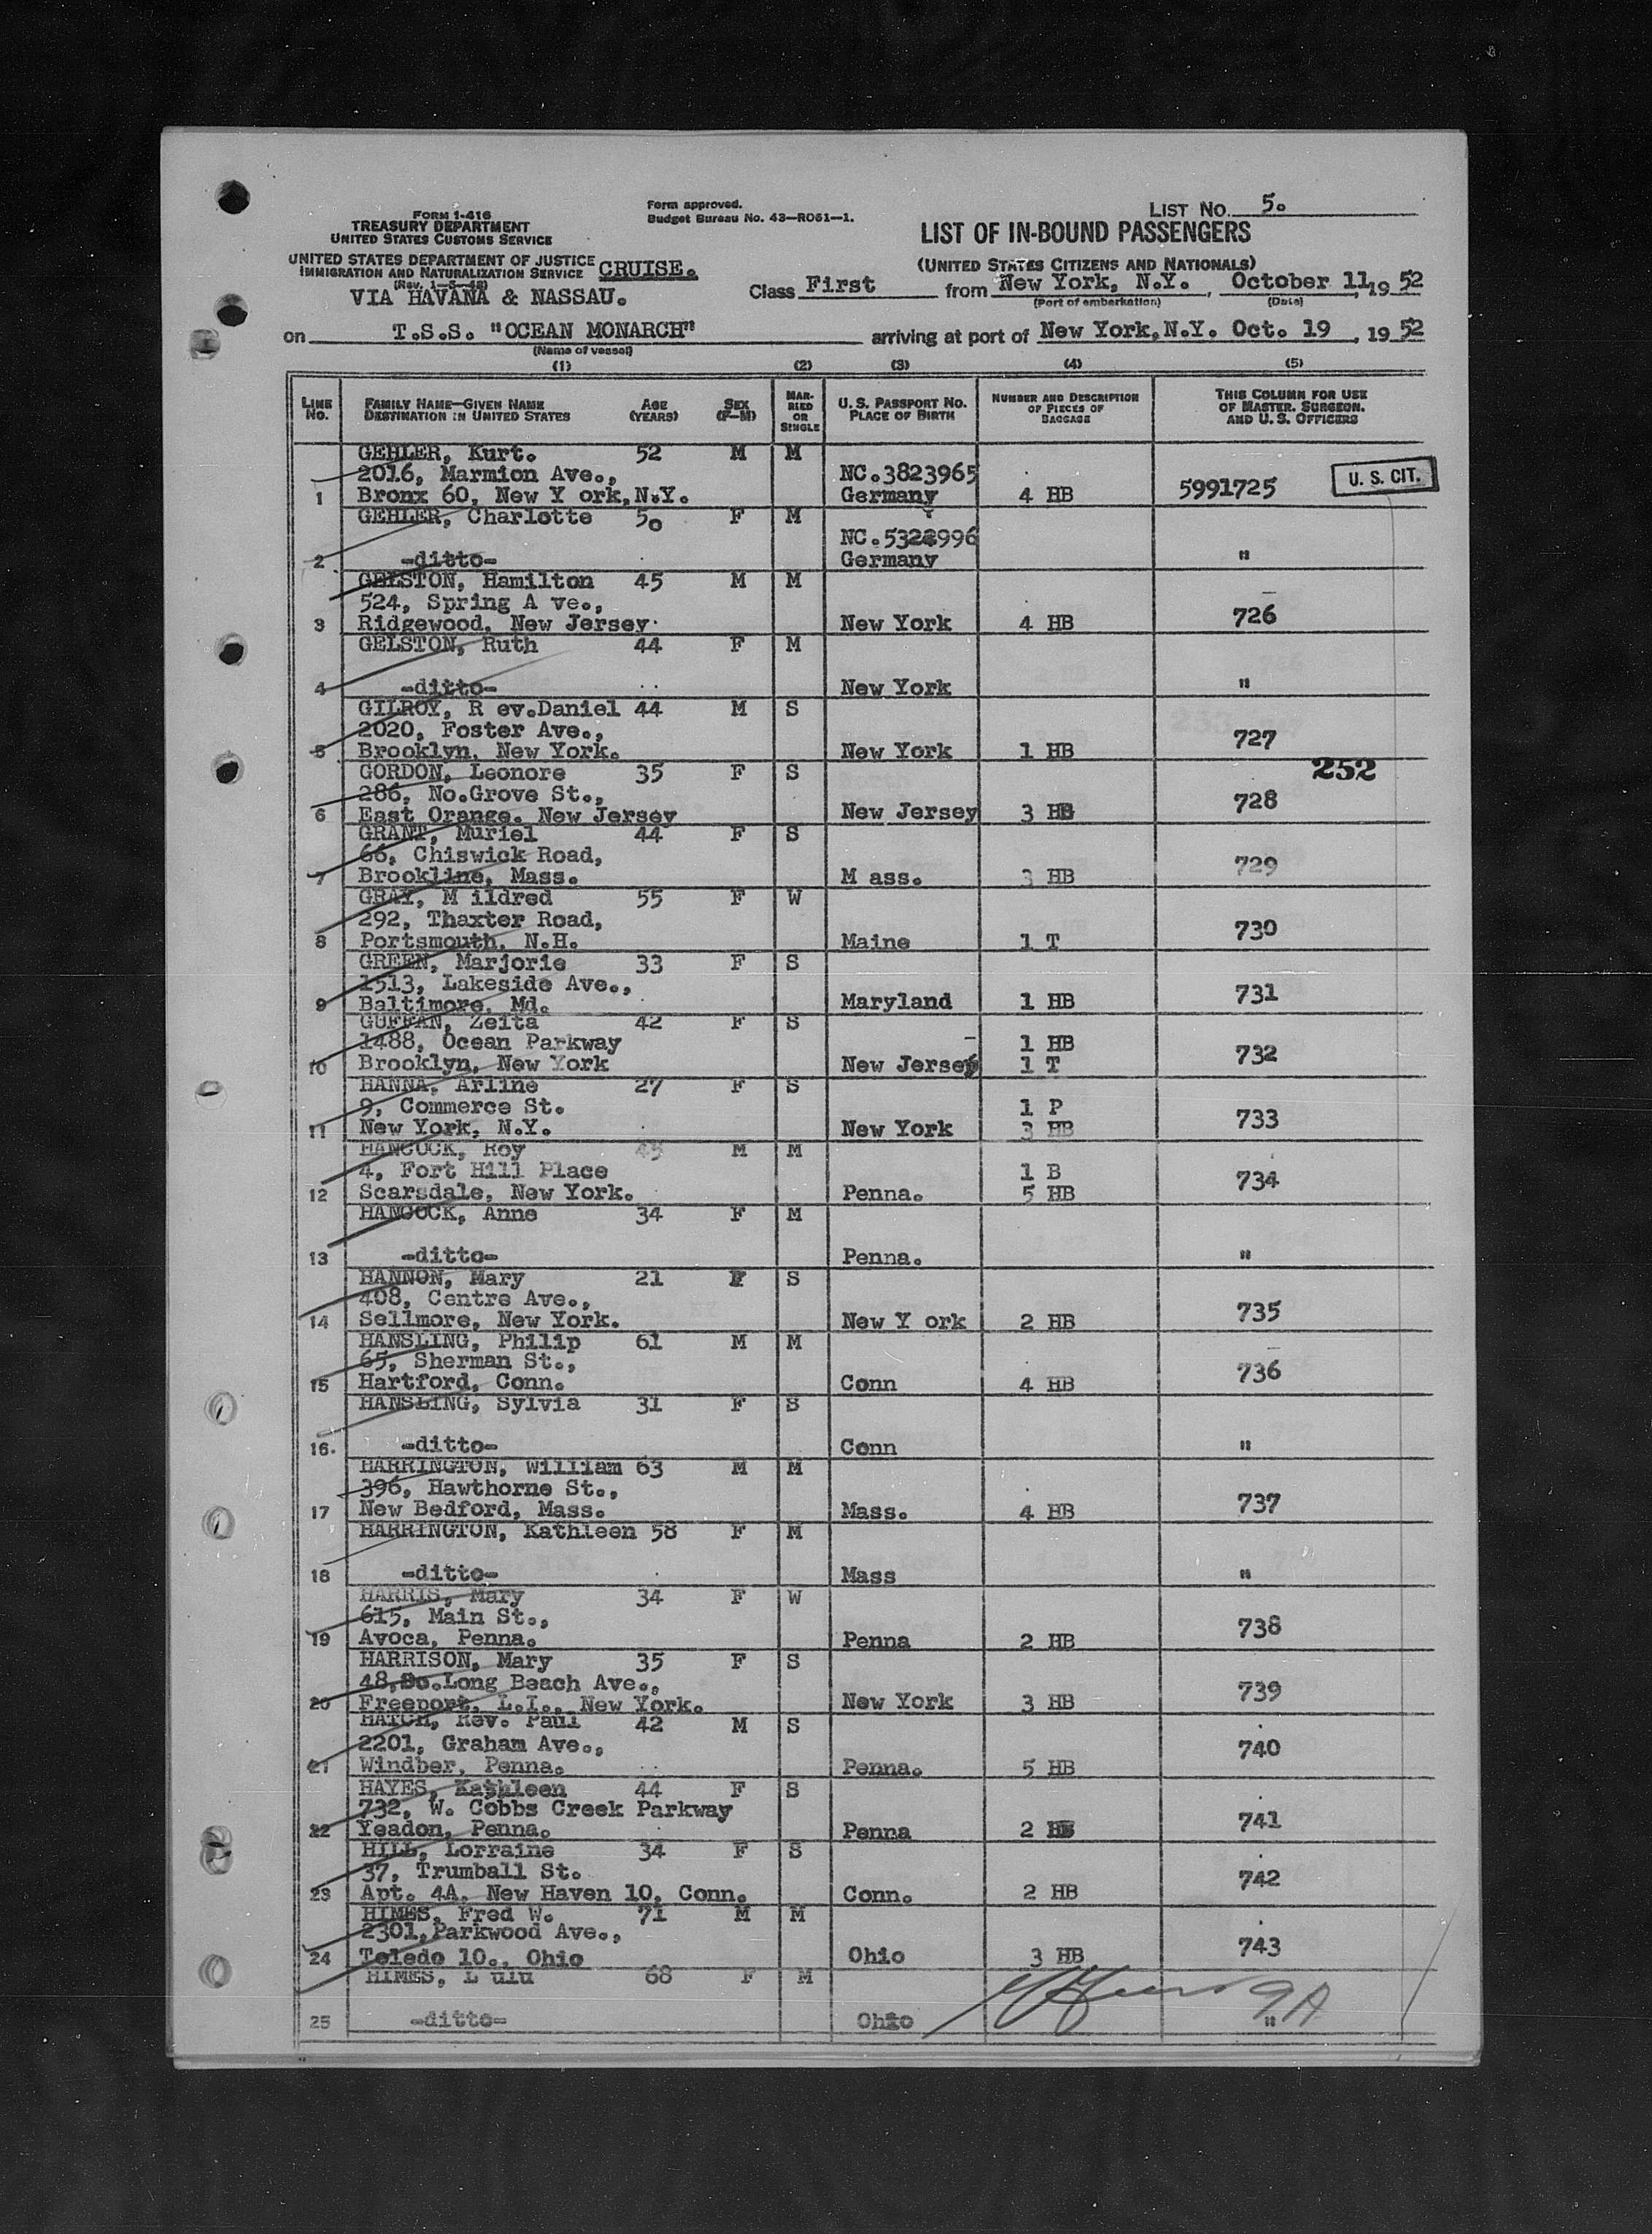 Form approved.
Budget Bureau No. 43—RO61—1.
LIST No. 5.
FORM I-416
TREASURY DEPARTMENT
UNITED STATES CUSTOMS SERVICE
LIST OF IN-BOUND PASSENGERS
(UNITED STATES CITIZENS AND NATIONALS)
UNITED STATES DEPARTMENT OF JUSTICE
IMMIGRATION AND NATURALIZATION SERVICE CRUISE.
(Rev. 1—5—48)
VIA HAVANA & NASSAU.
Class First from New York, N.Y. , October 11, 19 52
(Port of embarkation) (Date)
on T.S.S. "OCEAN MONARCH" arriving at port of New York, N.Y. Oct. 19 , 19 52
(Name of vessel)
(1) (2) (3) (4) (5)
LINE No. FAMILY NAME—GIVEN NAME DESTINATION IN UNITED STATES AGE (YEARS) SEX (F—M) MARRIED OR SINGLE U. S. PASSPORT No. PLACE OF BIRTH NUMBER AND DESCRIPTION OF PIECES OF BAGGAGE THIS COLUMN FOR USE OF MASTER, SURGEON, AND U. S. OFFICERS
GEHLER, Kurt. 52 M M
2016, Marmion Ave., NC.3823965 U. S. CIT.
1 Bronx 60, New Y ork,N.Y. Germany 4 HB 5991725
GEHLER, Charlotte 50 F M
NC.5322996
2 -ditto- Germany "
GELSTON, Hamilton 45 M M
524, Spring A ve., 726
3 Ridgewood, New Jersey New York 4 HB
GELSTON, Ruth 44 F M
4 -ditto- New York "
GILROY, R ev.Daniel 44 M S
2020, Foster Ave., 727
5 Brooklyn, New York. New York 1 HB
GORDON, Leonore 35 F S 252
286, No.Grove St., 728
6 East Orange, New Jersey New Jersey 3 HB
GRANT, Muriel 44 F S
66, Chiswick Road, 729
7 Brookline, Mass. M ass. 3 HB
GRAY, M ildred 55 F W
292, Thaxter Road, 730
8 Portsmouth, N.H. Maine 1 T
GREEN, Marjorie 33 F S
1513, Lakeside Ave., 731
9 Baltimore, Md. Maryland 1 HB
GUFFAN, Zeita 42 F S
1488, Ocean Parkway 1 HB 732
10 Brooklyn, New York New Jersey 1 T
HANNA, Arline 27 F S
9, Commerce St. 1 P 733
11 New York, N.Y. New York 3 HB
HANCOCK, Roy 45 M M
4, Fort Hill Place 1 B 734
12 Scarsdale, New York. Penna. 5 HB
HANCOCK, Anne 34 F M
13 -ditto- Penna. "
HANNON, Mary 21 F S
408, Centre Ave., 735
14 Sellmore, New York. New Y ork 2 HB
HANSLING, Philip 61 M M
65, Sherman St., 736
15 Hartford, Conn. Conn 4 HB
HANSLING, Sylvia 31 F S
16. -ditto- Conn "
HARRINGTON, William 63 M M
396, Hawthorne St., 737
17 New Bedford, Mass. Mass. 4 HB
HARRINGTON, Kathleen 58 F M
18 -ditto- Mass "
HARRIS, Mary 34 F W
615, Main St., 738
19 Avoca, Penna. Penna 2 HB
HARRISON, Mary 35 F S
48,So.Long Beach Ave., 739
20 Freeport, L.I., New York. New York 3 HB
HATCH, Rev. Paul 42 M S
2201, Graham Ave., 740
21 Windber, Penna. Penna. 5 HB
HAYES, Kathleen 44 F S
732, W. Cobbs Creek Parkway 741
22 Yeadon, Penna. Penna 2 HB
HILL, Lorraine 34 F S
37, Trumball St. 742
23 Apt. 4A, New Haven 10, Conn. Conn. 2 HB
HIMES, Fred W. 71 M M
2301,Parkwood Ave., 743
24 Toledo 10., Ohio Ohio 3 HB
HIMES, L ulu 68 F M
9A
25 -ditto- Ohio "